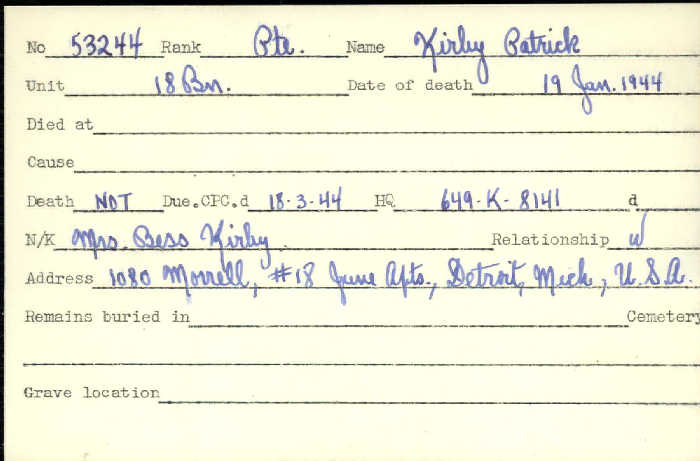 No 53244 Rank Pte. Name Kirby Patrick
Unit 18 Bn. Date of death 19 Jan. 1944
Died at
Cause
Death NOT Due.CPC.d 18-3-44 HQ 649-K-8141 d
N/K Mrs. Bess Kirby Relationship W
Address 1080 Morrell, #18 June Apts., Detroit, Mich, U.S.A.
Remains buried in Cemetery
Grave location